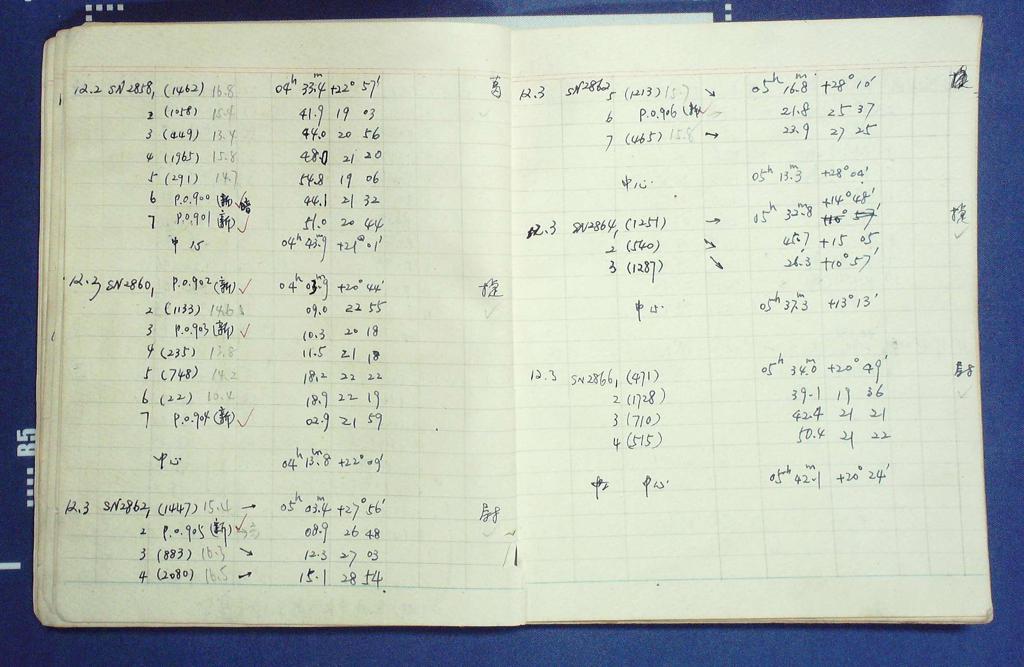 12.2 SN2858, 1 (1462) 16.8 04h 33.4m +22° 57' 葛
2 (1058) 15.4 41.9 19 03
3 (449) 13.4 44.0 20 56
4 (1965) 15.8 48.0 21 20
5 (291) 14.7 54.8 19 06
6 P.O.900 (新) ✓ 44.1 21 32
7 P.O.901 (新) ✓ 51.0 20 44
中心 04h 43.9m +21° 01'
12.3 SN2860, 1 P.O.902 (新) ✓ 04h 03.9m +20° 44'
2 (1133) 14.6 09.0 22 55
3 P.O.903 (新) ✓ 10.3 20 18
4 (235) 13.8 11.5 21 18
5 (748) 14.2 18.2 22 22
6 (22) 10.4 18.9 22 19
7 P.O.904 (新) ✓ 02.9 21 59
中心 04h 13.8m +22° 09'
12.3 SN2862, 1 (1447) 15.4 → 05h 03.4m +27° 56'
2 P.O.905 (新) ✓ 08.9 26 48
3 (883) 16.3 ↘ 12.3 27 03
4 (2080) 16.5 → 15.1 28 54
12.3 SN2862 5 (1213) 15.7 ↘ 05h 16.8m +28° 10'
6 P.O.906 (新) ✓ 21.8 25 37
7 (465) 15.8 → 23.9 27 25
中心 05h 13.3m +28° 04'
12.3 SN2864, 1 (1251) → 05h 32.8m +14° 48'
2 (540) ↘ 45.7 +15 05
3 (1287) ↘ 26.3 +10° 57'
中心 05h 37.3m +13° 13'
12.3 SN2866, 1 (471) 05h 34.0m +20° 49'
2 (1728) 39.1 19 36
3 (710) 42.4 21 21
4 (515) 50.4 21 22
中心 05h 42.1m +20° 24'
R5